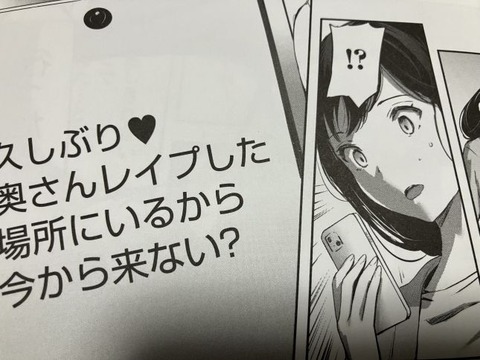 久しぶり♥
奥さんレイプした
場所にいるから
今から来ない?
!?